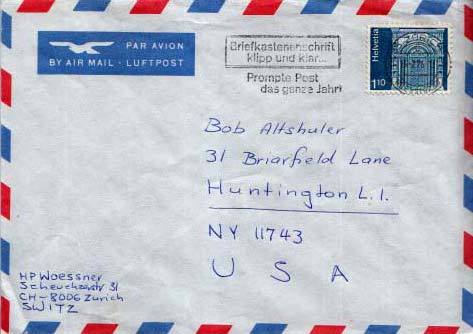 PAR AVION
BY AIR MAIL · LUFTPOST
Briefkastenanschrift
klipp und klar...
Prompte Post
das ganze Jahr!
Helvetia
1.10
Bob Altshuler
31 Briarfield Lane
Huntington L.I.
NY 11743
U S A
HP Woessner
Scheuchzerstr 31
CH-8006 Zürich
SWITZ